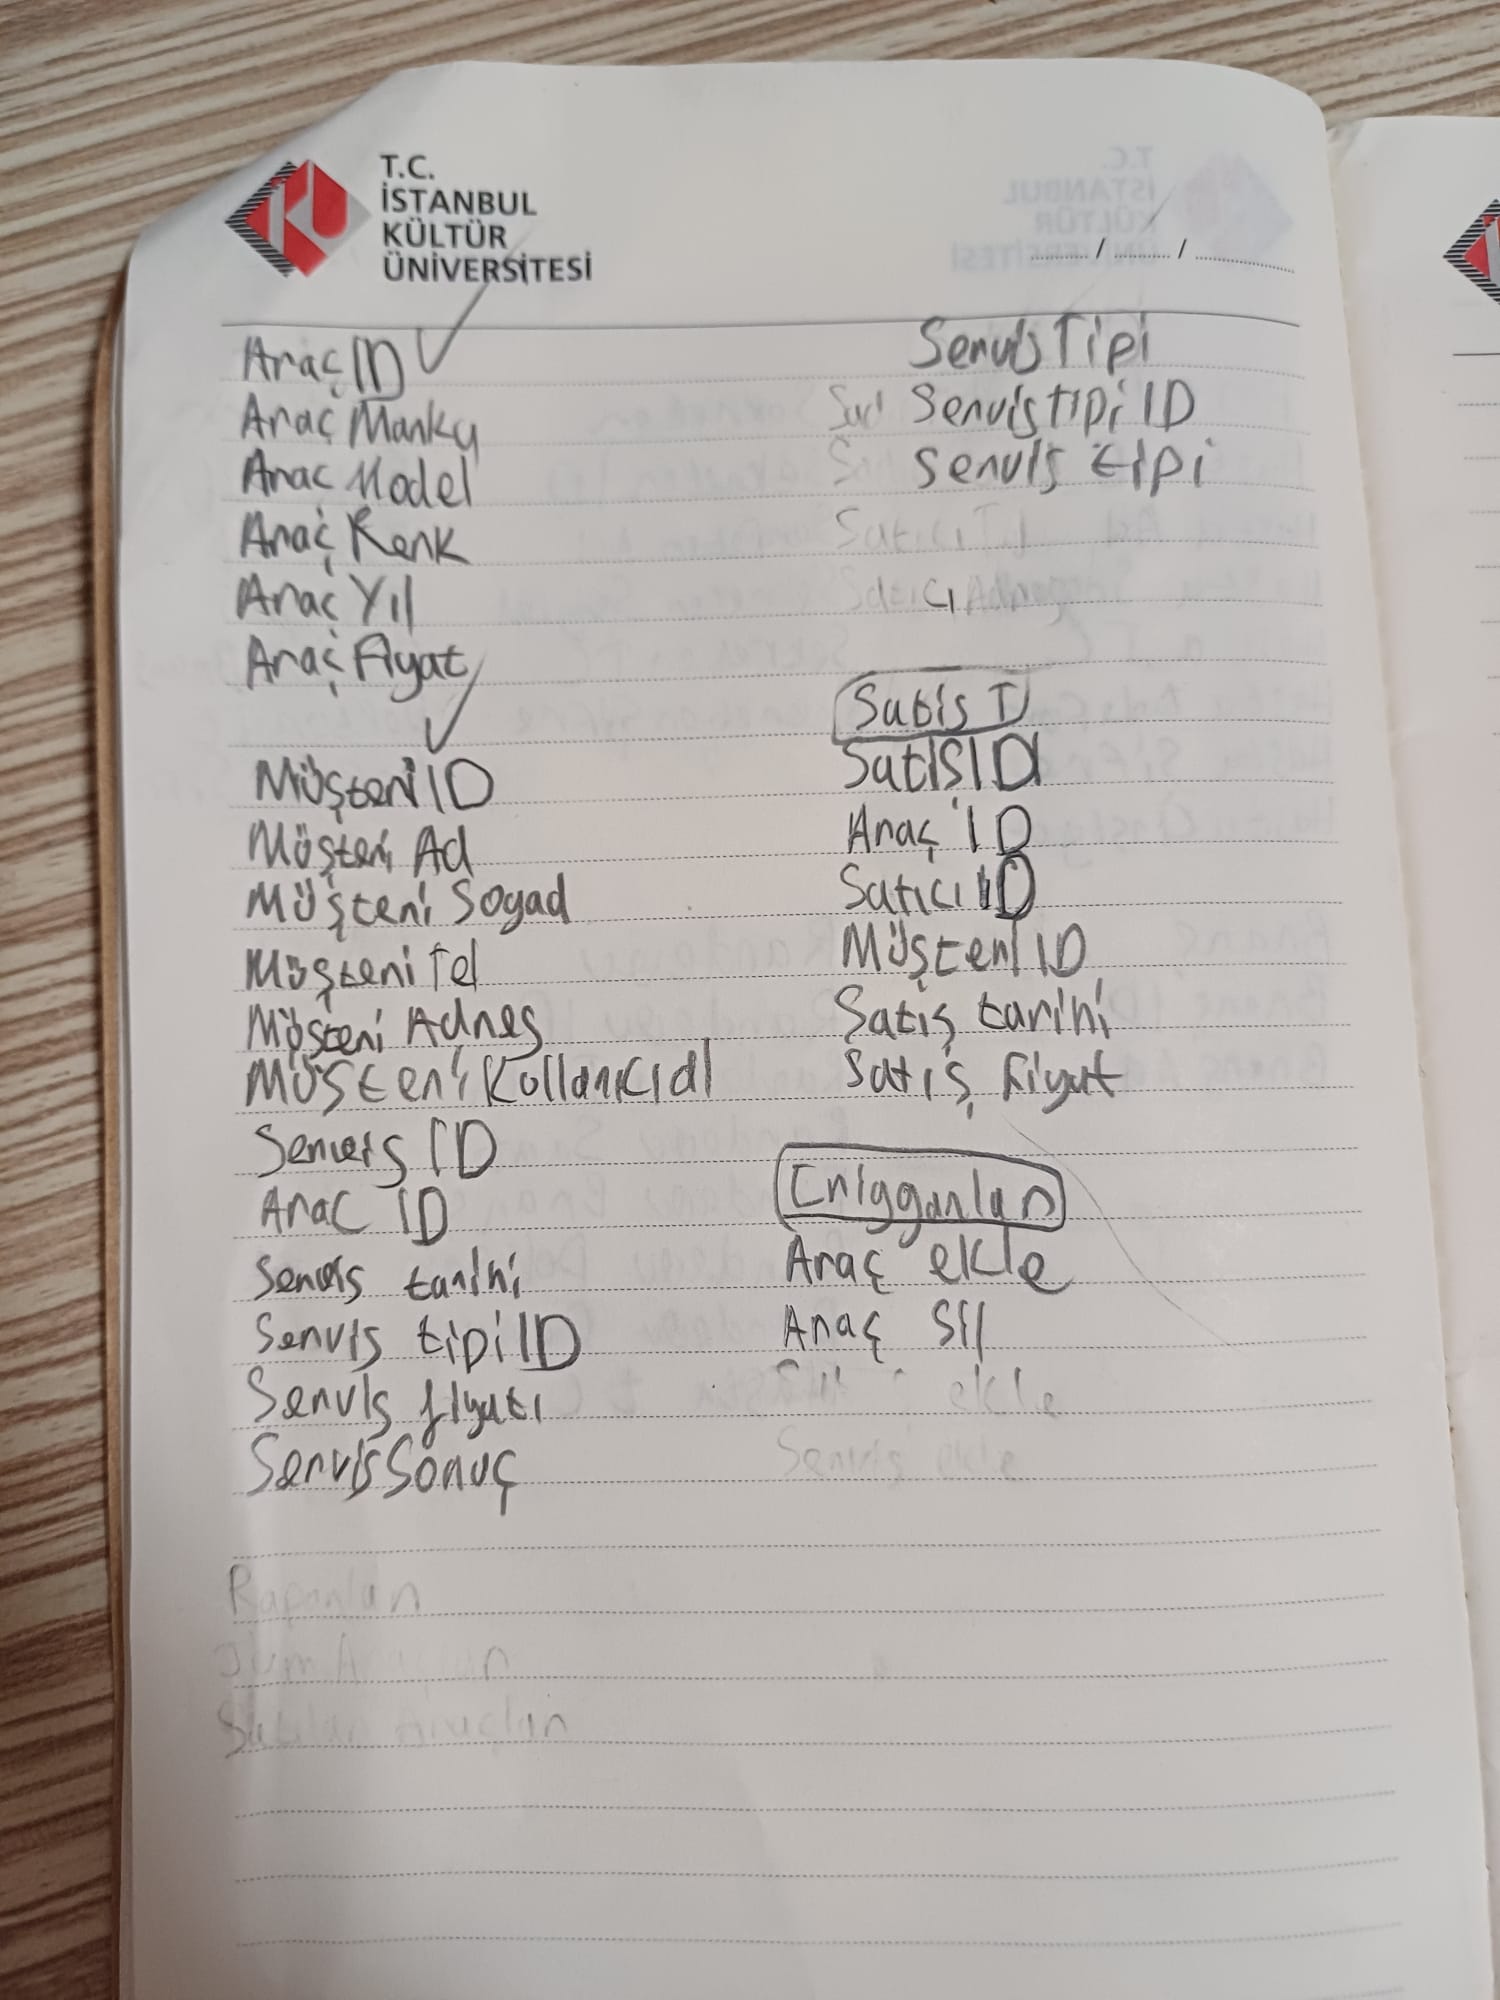 T.C.
İSTANBUL
KÜLTÜR
ÜNİVERSİTESİ
Araç ID
Araç Marka
Araç Model
Araç Renk
Araç Yıl
Araç Fiyat
Müşteri ID
Müşteri Ad
Müşteri Soyad
Müşteri Tel
Müşteri Adres
Müşteri Kullanıcıdl
Servis ID
Arac ID
Servis tarihi
Servis tipi ID
Servis fiyatı
Servis Sonuç
Raporlar
Satılan Araçlar
Servis Tipi
Servis tipi ID
Servis tipi
Satıcı
Satıcı
Satis T
Satış ID
Araç ID
Satıcı ID
Müşteri ID
Satiş tarihi
Satış fiyat
Araç ekle
Araç Sil
ekle
Servis ekle